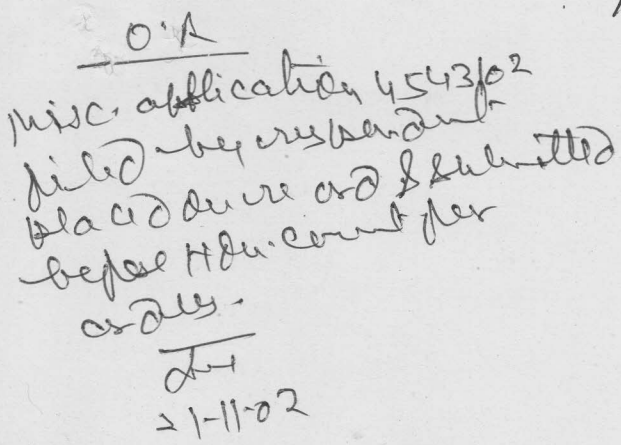 O.R
Misc. application 4543/02
filed by respondent
placed on record & submitted
before Hon. court for
orders.
21-11-02